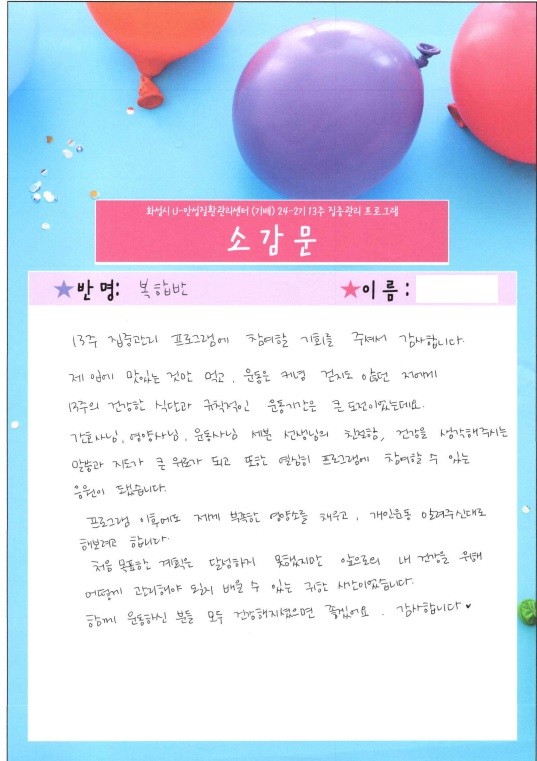 화성시 U-만성질환관리센터 (기배) 24-2기 13주 집중관리 프로그램
소감문
반명: 복합반
이름:
13주 집중관리 프로그램에 참여할 기회를 주셔서 감사합니다.
제 입에 맛있는 것만 먹고, 운동은 커녕 걷지도 않던 저에게
13주의 건강한 식단과 규칙적인 운동기간은 큰 도전이었는데요.
간호사님, 영양사님, 운동사님 세분 선생님의 친절함, 건강을 생각해주시는
말씀과 지도가 큰 위로가 되고 또한 열심히 프로그램에 참여할 수 있는
응원이 됐습니다.
프로그램 이후에도 제게 부족한 영양소를 채우고, 개인운동 알려주신대로
해보려고 합니다.
처음 목표한 계획은 달성하지 못했지만 앞으로의 내 건강을 위해
어떻게 관리해야 될지 배울 수 있는 귀한 시간이었습니다.
함께 운동하신 분들 모두 건강해지셨으면 좋겠어요. 감사합니다♥